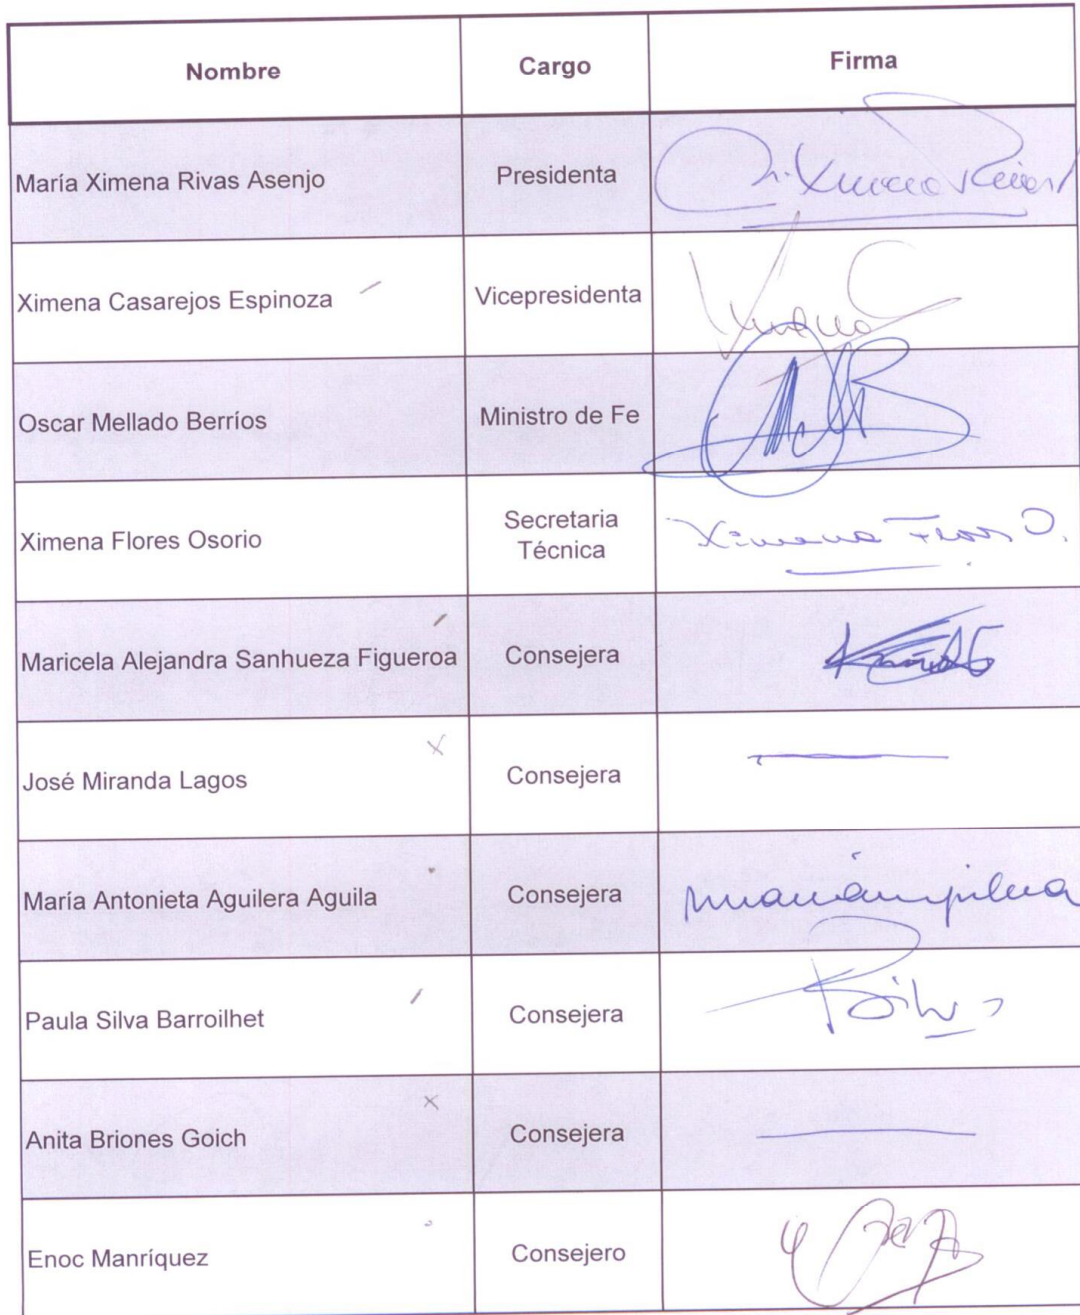 Nombre Cargo Firma
María Ximena Rivas Asenjo Presidenta
Ximena Casarejos Espinoza Vicepresidenta
Oscar Mellado Berríos Ministro de Fe
Ximena Flores Osorio Secretaria Técnica Ximena Flores O.
Maricela Alejandra Sanhueza Figueroa Consejera
José Miranda Lagos Consejera
María Antonieta Aguilera Aguila Consejera
Paula Silva Barroilhet Consejera
Anita Briones Goich Consejera
Enoc Manríquez Consejero